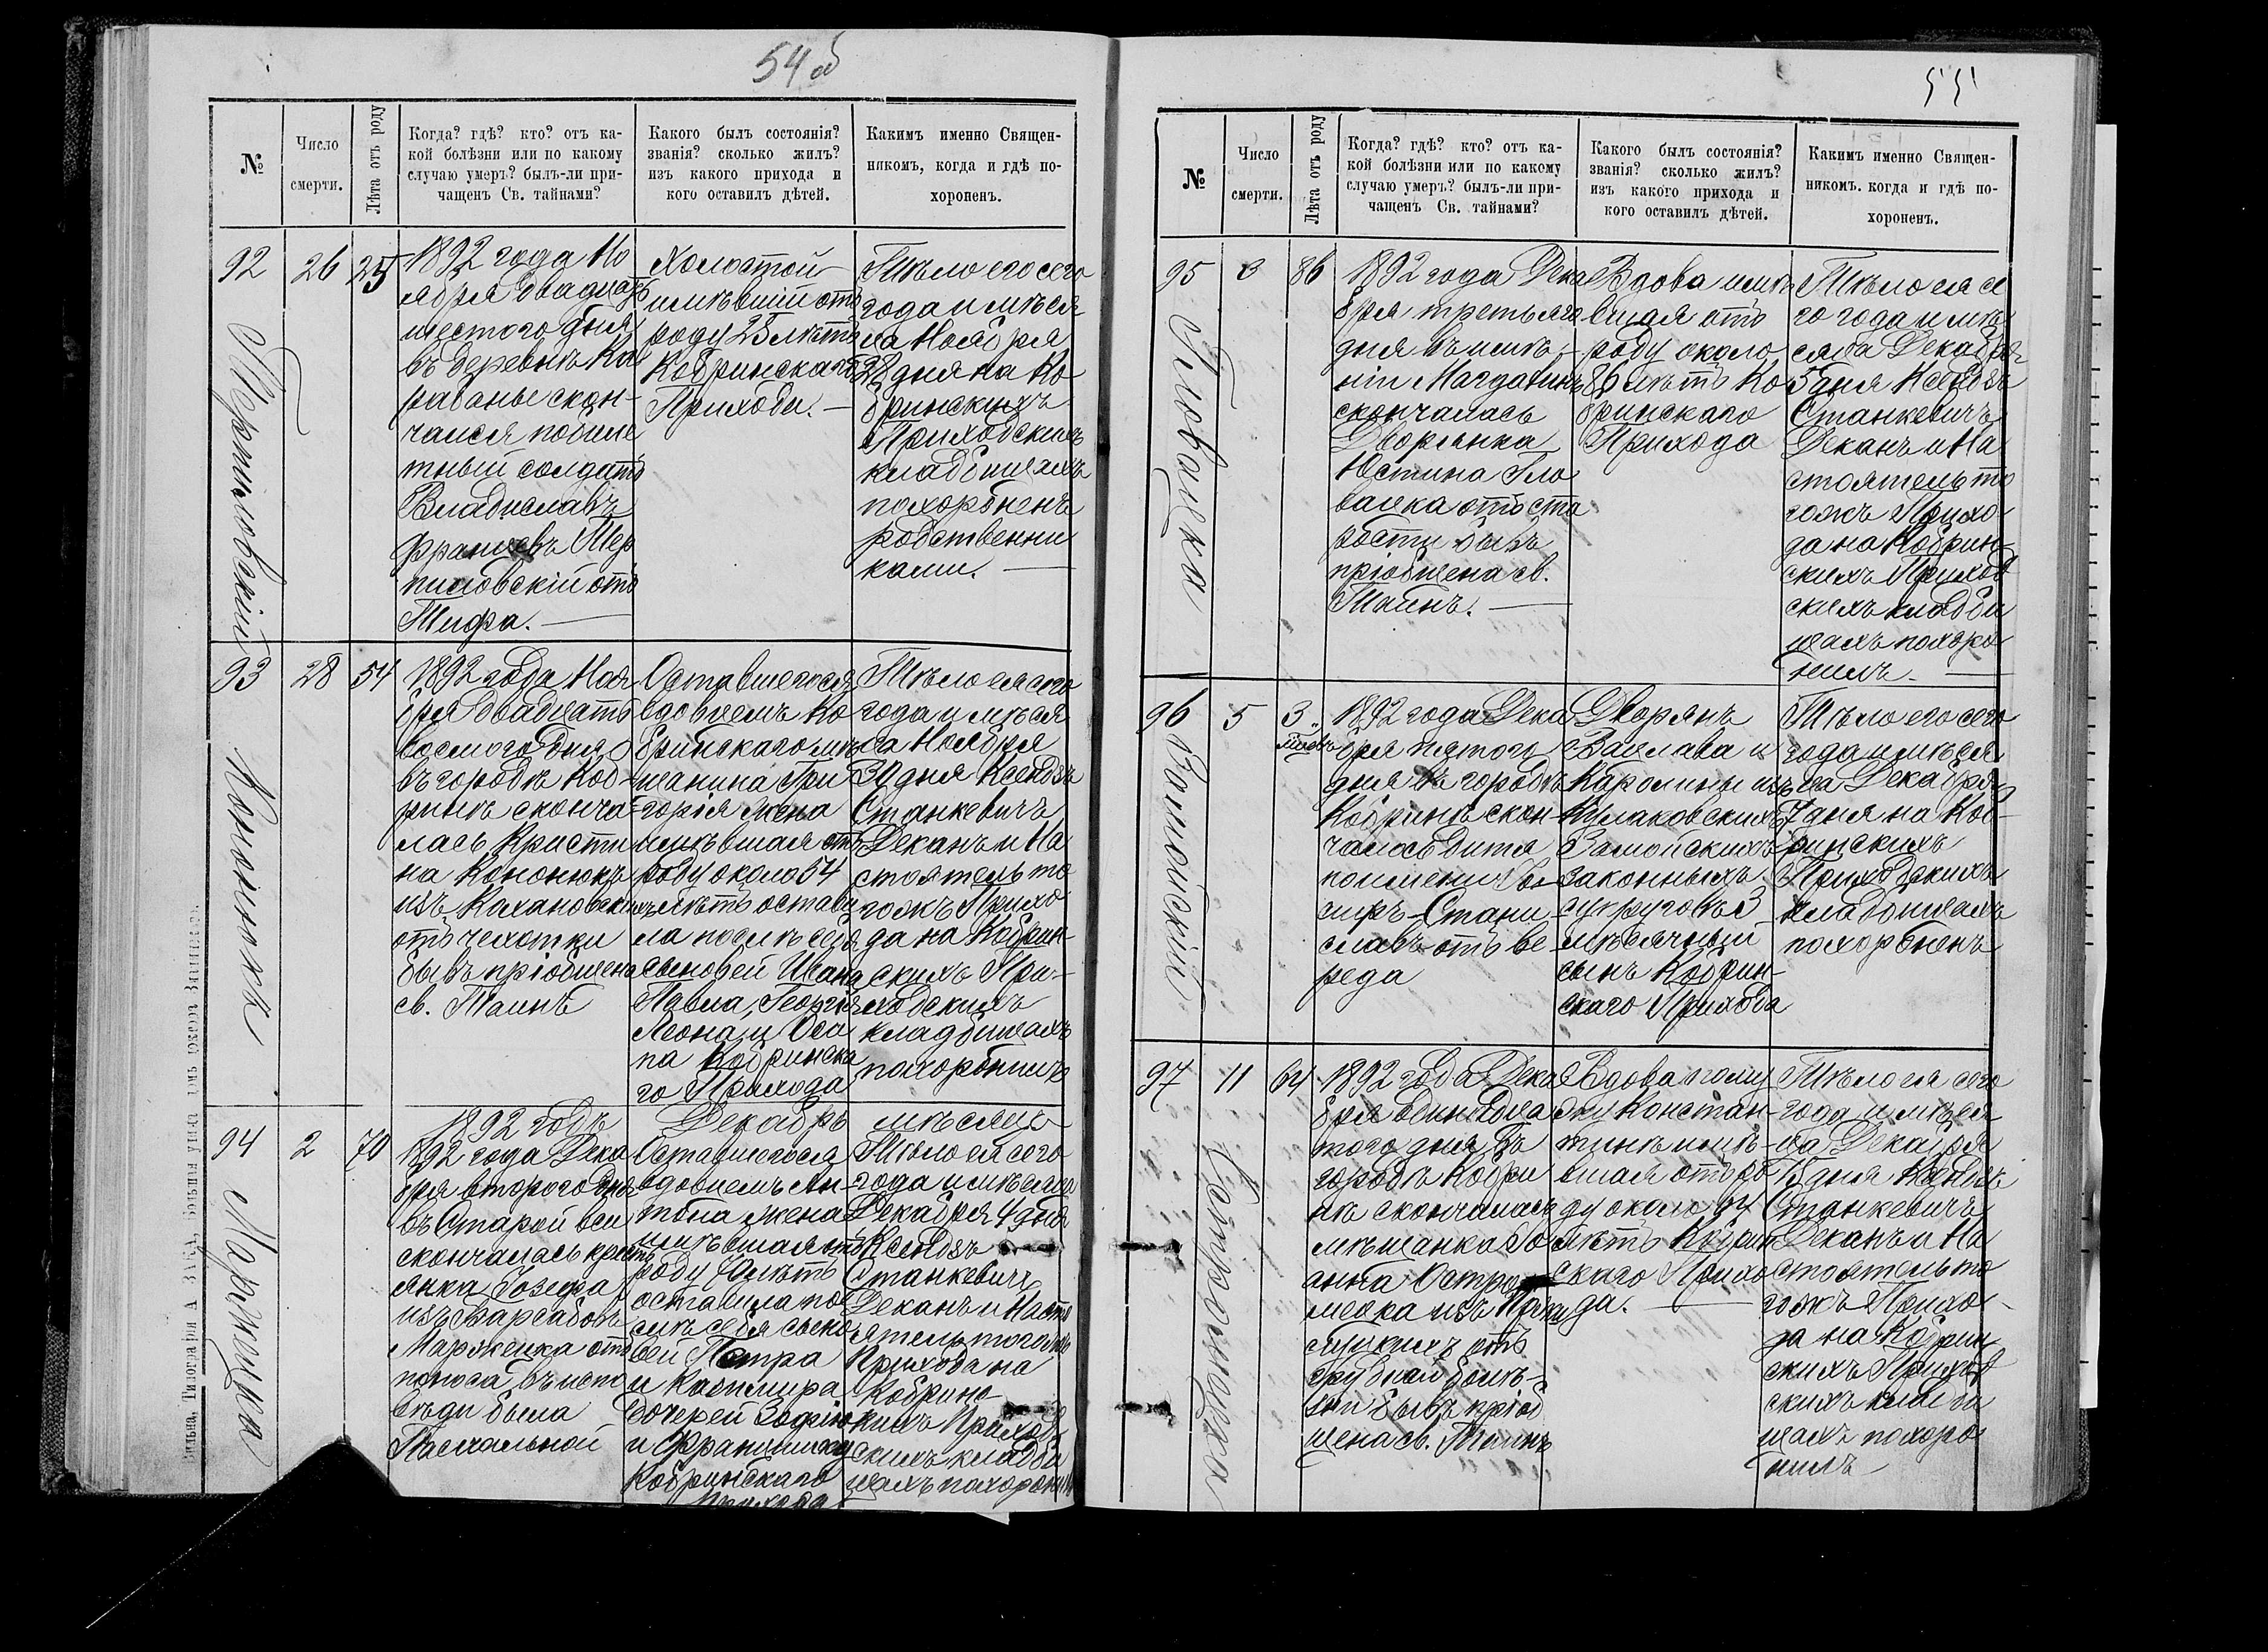 54 об
№
Число
смерти.
Лѣта отъ роду
Когда? гдѣ? кто? отъ ка-
кой болѣзни или по какому
случаю умеръ? былъ-ли при-
чащенъ Св. тайнами?
Какого былъ состоянія?
званія? сколько жилъ?
изъ какого прихода и
кого оставилъ дѣтей.
Какимъ именно Священ-
никомъ, когда и гдѣ по-
хороненъ.
92
26
25
1892 года Но
ября двадцать
шестого дня
въ деревнѣ
скон-
чался
солдатъ
Владиславъ
Францевъ Шер
пиловскій отъ
Тифа.
Холостой
имѣвшій отъ
роду 25 лѣтъ
Кобринскаго
Прихода.
Тѣло его сего
года и мѣся
ца Ноября
28 дня на Ко
бринскихъ
Приходскихъ
кладбищахъ
похороненъ
родственни
ками.
93
Кононюкъ
28
54
1892 года Ноя
бря двадцать
восмого дня
въ городѣ Коб-
ринѣ сконча
лась Кристи
на Кононюкъ
изъ Кахановскихъ
отъ чехотки
бывъ пріобщена
св. Таинъ
Оставшегося
вдовцемъ Ко
бринскаго мѣ
щанина Гри
горія жена
имѣвшая отъ
роду около 54
лѣтъ остави
ла послѣ себя
сыновей Ивана
Павла, Георгія
Леона и Оси
па Кобринска
го Прихода
Тѣло ея сего
года и мѣся
ца Ноября
30 дня Ксендзъ
Станкевичъ
Деканъ и На
стоятель то
гожъ Прихо
да на Кобрин-
скихъ При-
ходскихъ
кладбищахъ
похоронилъ
1892 годъ Декабрь мѣсяцъ
94
2
70
1892 года Дека
бря второго дня
въ Старой вси
скончалась крест
янка Іозефа
изъ Барсабовъ
Маржецка отъ
поноса бъ испо
вѣди была
Пасхальной
Оставшегося
вдовцемъ Ан-
тона жена
имѣвшая отъ
роду 70 лѣтъ
оставила по
слѣ себя сыно
вей Петра
и Казимира
дочерей Зофію
и Францишку
Кобринскаго
Прихода
Тѣло ея сего
года и мѣсяца
Декабря 4 дня
Ксендзъ
Станкевичъ
Деканъ и Насто
ятель тогожъ
Прихода на
Кобрин-
скихъ Приход
скихъ кладби
щахъ похоронилъ
Вильна, Типографія А. ЗАКА
55
№
Число
смерти.
Лѣта отъ роду
Когда? гдѣ? кто? отъ ка-
кой болѣзни или по какому
случаю умеръ? былъ-ли при-
чащенъ Св. тайнами?
Какого былъ состоянія?
званія? сколько жилъ?
изъ какого прихода и
кого оставилъ дѣтей.
Какимъ именно Священ-
никомъ. когда и гдѣ по-
хороненъ.
95
Гловацка
3
86
1892 года Дека
бря третьяго
дня въ имѣ-
ніи Магдалинъ
скончалась
Дворянка
Юстина Гло
вацка отъ ста
рости бывъ
пріобщена св.
Таинъ.
Вдова имѣ
вшая отъ
роду около
86 лѣтъ Ко
бринскаго
Прихода
Тѣло ея се
го года и мѣ
сяца Декабря
5 дня Ксендзъ
Станкевичъ
Деканъ и На
стоятель то
гожъ Прихо
да на Кобрин-
скихъ Приход
скихъ кладби
щахъ похоро
нилъ.
96
5
3.
1892 года Дека
бря пятого
дня въ городѣ
Кобринѣ скон-
чалось дитя
по имени
Стани
славъ отъ ве
реда
Дворянъ
Вацлава и
Каролины изъ
Кулаковскихъ
Замойскихъ
законныхъ
супруговъ 3
мѣсячный
сынъ Кобрин-
скаго Прихода
Тѣло его сего
года и мѣся
ца Декабря
7 дня на Коб-
ринскихъ
Приходскихъ
кладбищахъ
похороненъ
97
11
64
1892 года Дека
бря одинадца
того дня въ
городѣ Кобри
нѣ скончалась
мѣщанка Іо
анна Остро
мецка изъ
отъ
грудной болѣ-
зни бывъ пріоб
щена св. Таинъ
Вдова по му
жу Констан-
тинѣ имѣ-
вшая отъ ро
ду около 64
лѣтъ Кобрин
скаго Прихо
да.
Тѣло ея сего
года и мѣся
ца Декабря
13 дня Ксендзъ
Станкевичъ
Деканъ и На
стоятель то
гожъ Прихо
да на Кобрин
скихъ Приход
скихъ кладби
щахъ похоро
нилъ